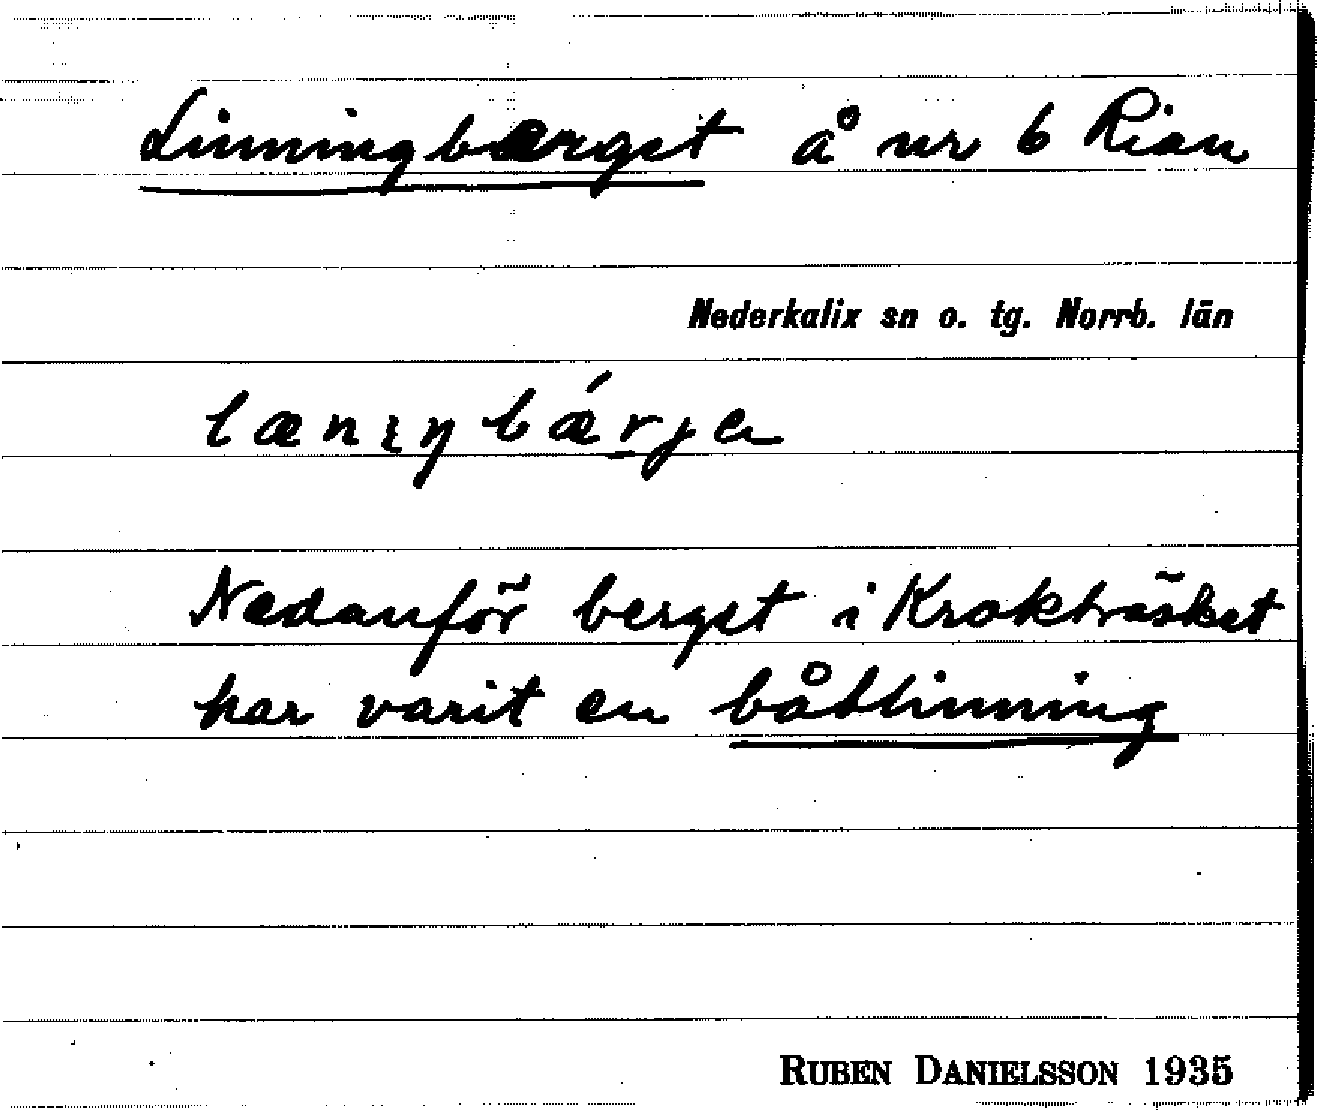 Linningberget å nr 6 Rian
Nederkalix sn o. tg. Norrb. län
lænıŋbǽrjɐ
Nedanför berget i Krokträsket
har varit en båtlinning
RUBEN DANIELSSON 1935